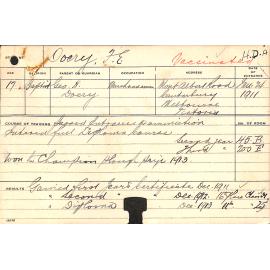 Doery, F. E
Vaccinated
H.D.A
AGE RELIGION PARENT OR GUARDIAN OCCUPATION ADDRESS DATE NO. OF ROOM
17 Baptist Geo. H. Doery Warehouseman Mont Albert Road
Canterbury
Melbourne
Victoria
1911
COURSE OF TRAINING Passed Entrance Examination
Entered full Diploma Course
Second year 40 B
Third " 200 E
Won the Champion Plough Prize 1913
RESULTS Gained First Year's Certificate Dec 1911
" Second " " Dec 1912
" Diploma Dec 1913